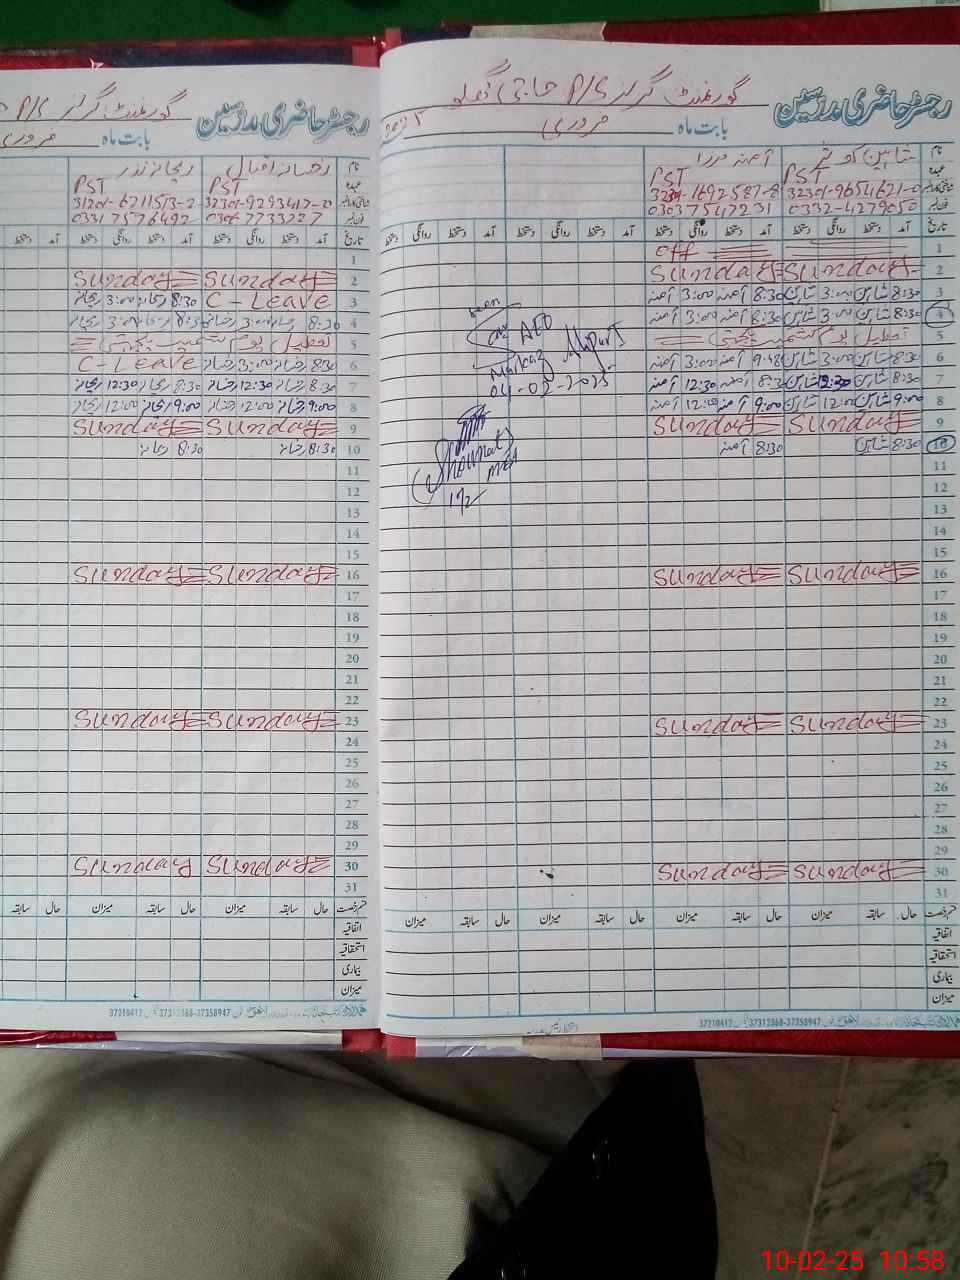 رجسٹر حاضری مدرسین
گورنمنٹ گرلز P/S حاجی
بابت ماہ فروری 2025
نام
PST PST
32301-9654621-0
0332-4279050 03037547231
تاریخ آمد دستخط روانگی دستخط آمد دستخط روانگی دستخط آمد دستخط روانگی دستخط آمد دستخط روانگی دستخط
1 off
2 Sunday Sunday
3 8:30 شاہین 3:00 شاہین 8:30 آمنہ 3:00 آمنہ
4 8:30 شاہین 3:00 شاہین 8:30 آمنہ 3:00 آمنہ
5 تعطیل یوم کشمیر یکجہتی
6 8:30 شاہین 3:00 شاہین 9:48 آمنہ 3:00 آمنہ
7 8:30 شاہین 12:30 شاہین 8:30 آمنہ 12:30 آمنہ
8 9:00 شاہین 12:00 شاہین 9:00 آمنہ آمنہ
9 Sunday Sunday
10 8:30 شاہین 8:30 آمنہ
11
12
13
14
15
16 Sunday Sunday
17
18
19
20
21
22
23 Sunday Sunday
24
25
26
27
28
29
30 Sunday Sunday
31
Seen
AEO
Markaz
04-02-2025
MEA
قسم رخصت حال سابقہ میزان حال سابقہ میزان حال سابقہ میزان حال سابقہ میزان
اتفاقیہ
استحقاقیہ
بیماری
میزان
37310412 37312368-37358947
رجسٹر حاضری مدرسین
گورنمنٹ گرلز P/S
بابت ماہ فروری
نام رخسانہ اقبال ریحانہ نذر
PST PST
32301-9293417-0 31201-6211513-2
0306 7733227 0331 7576492
تاریخ آمد دستخط روانگی دستخط آمد دستخط روانگی دستخط
1
2 Sunday Sunday
3 C-Leave 8:30 ریحانہ 3:00 ریحانہ
4 8:30 رخسانہ 3:00 رخسانہ 8:30 ریحانہ 3:00 ریحانہ
5 تعطیل یوم کشمیر یکجہتی
6 8:30 رخسانہ 3:00 رخسانہ C-Leave
7 8:30 رخسانہ 12:30 رخسانہ 8:30 ریحانہ 12:30 ریحانہ
8 9:00 رخسانہ 12:00 رخسانہ 9:00 ریحانہ 12:00 ریحانہ
9 Sunday Sunday
10 8:30 رخسانہ 8:30 ریحانہ
11
12
13
14
15
16 Sunday Sunday
17
18
19
20
21
22
23 Sunday Sunday
24
25
26
27
28
29
30 Sunday Sunday
31
قسم رخصت حال سابقہ میزان حال سابقہ میزان
اتفاقیہ
استحقاقیہ
بیماری
میزان
37310412 37312368-37358947
10-02-25 10:58